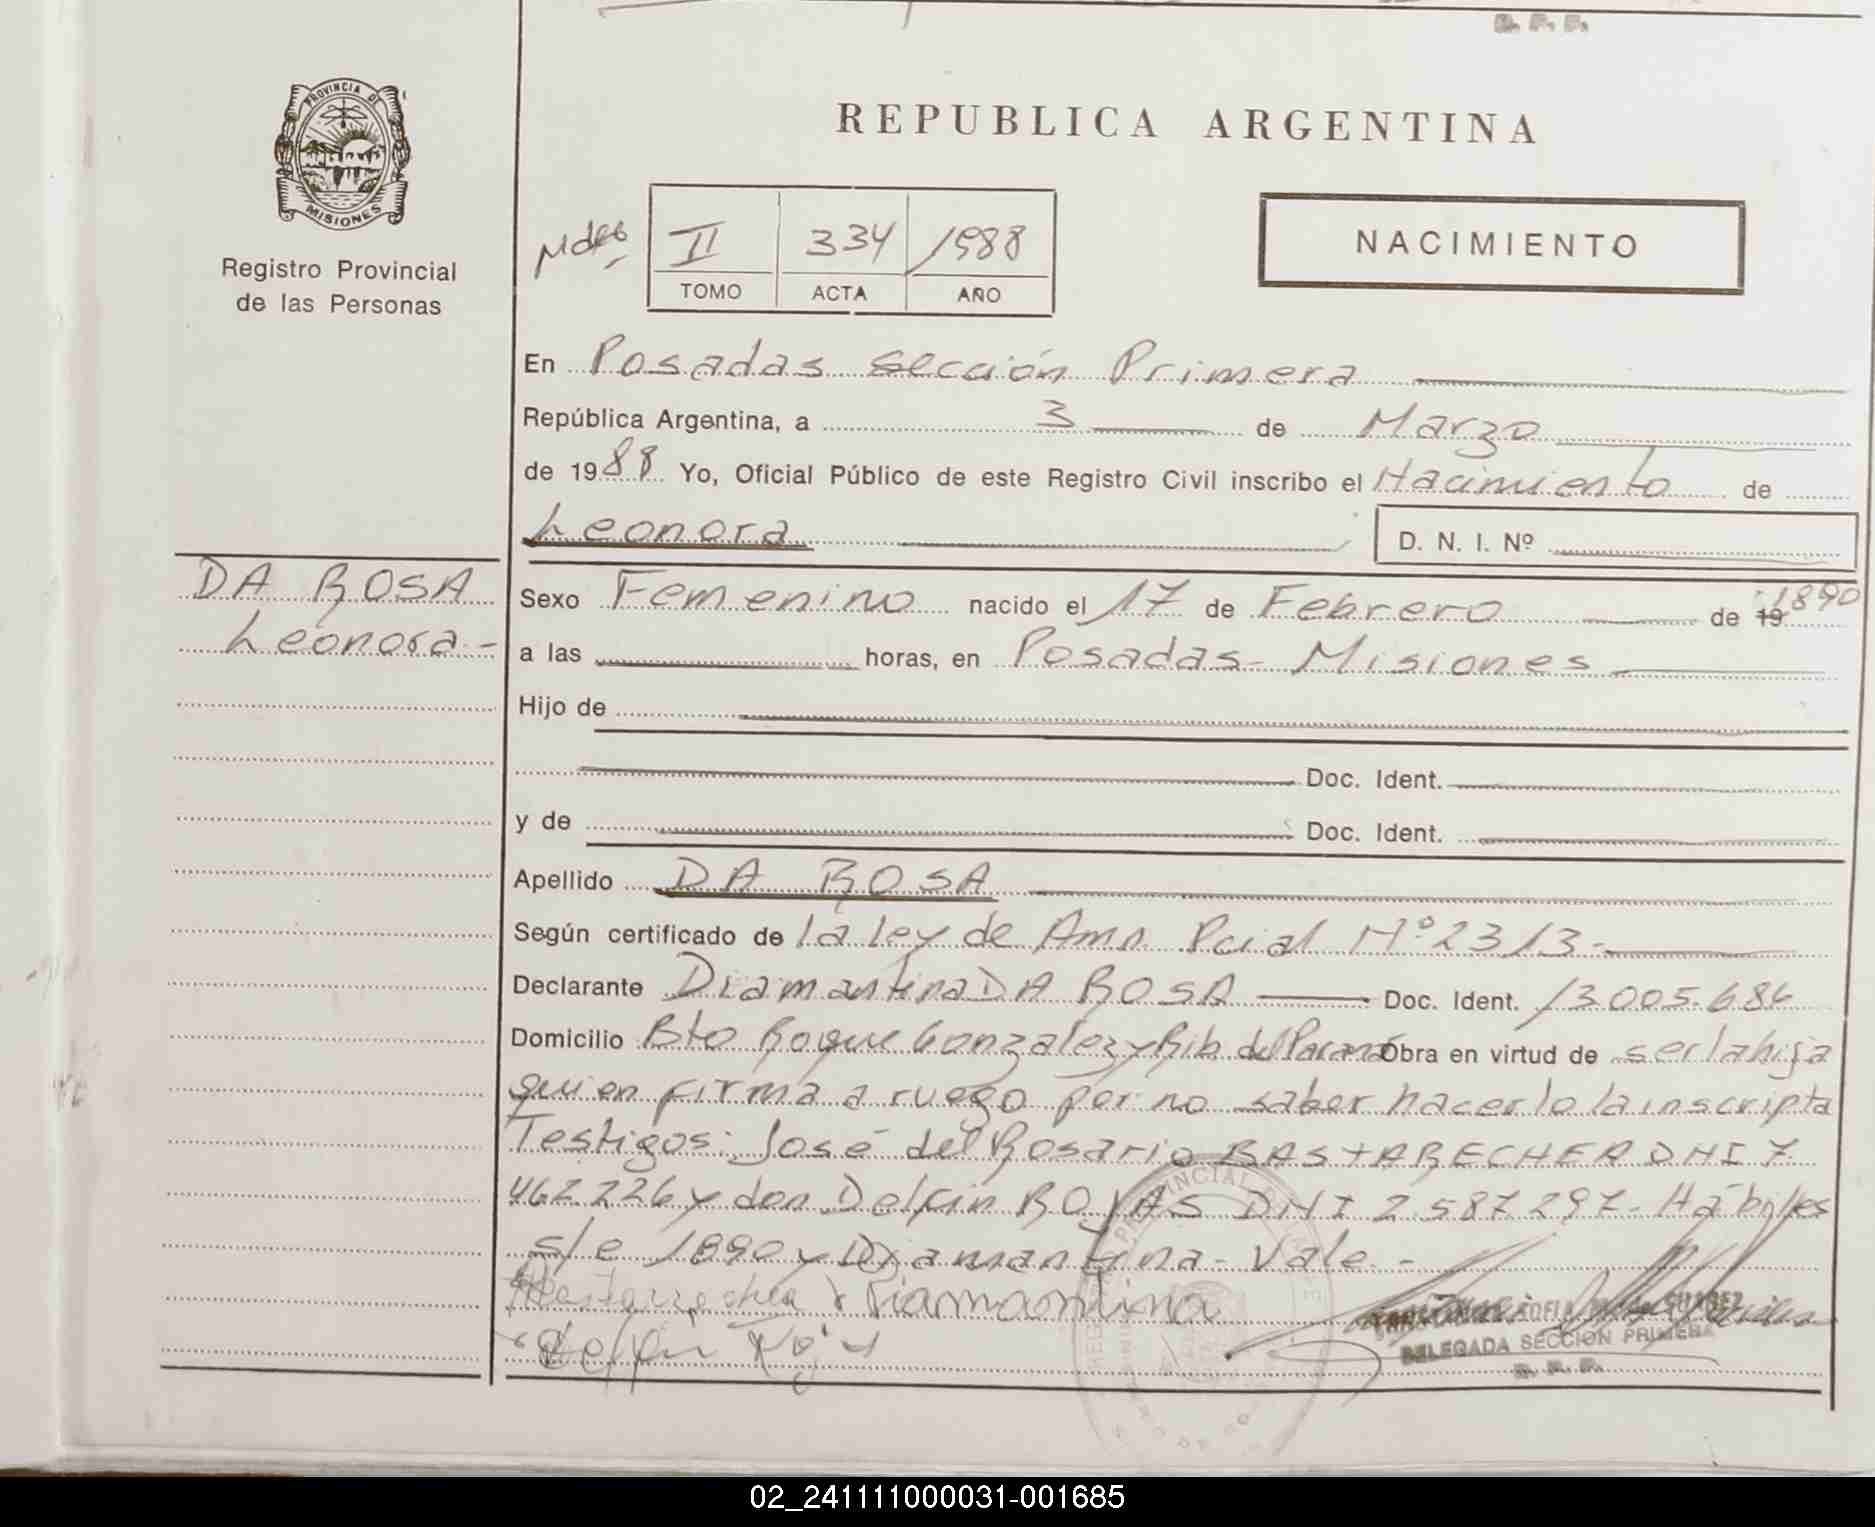 D. P. P.
PROVINCIA DE
MISIONES
Registro Provincial
de las Personas
REPUBLICA ARGENTINA
II 334 /1988
TOMO ACTA AÑO
NACIMIENTO
En Posadas sección Primera
República Argentina, a 3 de Marzo
de 1988 Yo, Oficial Público de este Registro Civil inscribo el Nacimiento de
Leonora D. N. I. Nº
DA ROSA
Leonora -
Sexo Femenino nacido el 17 de Febrero de 19 1890
a las horas, en Posadas - Misiones
Hijo de
Doc. Ident.
y de Doc. Ident.
Apellido DA ROSA
Según certificado de la ley de Amn. Pcial Nº 2313-
Declarante Diamantina DA ROSA Doc. Ident. 13.005.686
Domicilio Bto Roque Gonzalez y Rib. del Paraná Obra en virtud de ser la hija
quien firma a ruego por no saber hacerlo la inscripta
Testigos: José del Rosario BASTARECHEA DNI 7.
462.226 y don Delfin ROJAS DNI 2.587.297- Hábiles
s/e 1890 y Diamantina - Vale.-
Diamantina
SUAREZ
DELEGADA SECCION PRIMERA
02_241111000031-001685